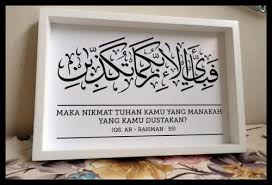 فَبِأَيِّ آلَاءِ رَبِّكُمَا تُكَذِّبَانِ
MAKA NIKMAT TUHAN KAMU YANG MANAKAH
YANG KAMU DUSTAKAN?
(QS. AR - RAHMAN : 55)